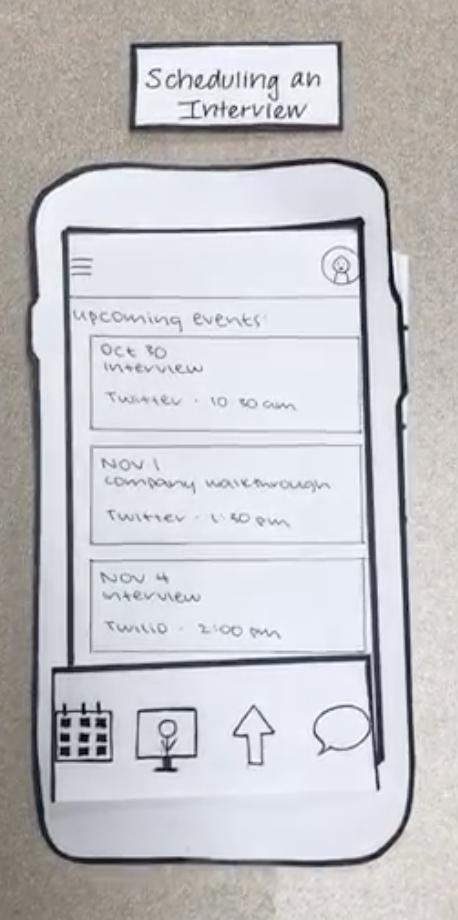 Scheduling an
Interview
upcoming events:
Oct 30
interview
Twitter · 10:30 am
NOV 1
company walkthrough
Twitter · 1:30 pm
NOV 4
interview
Twilio · 2:00 pm